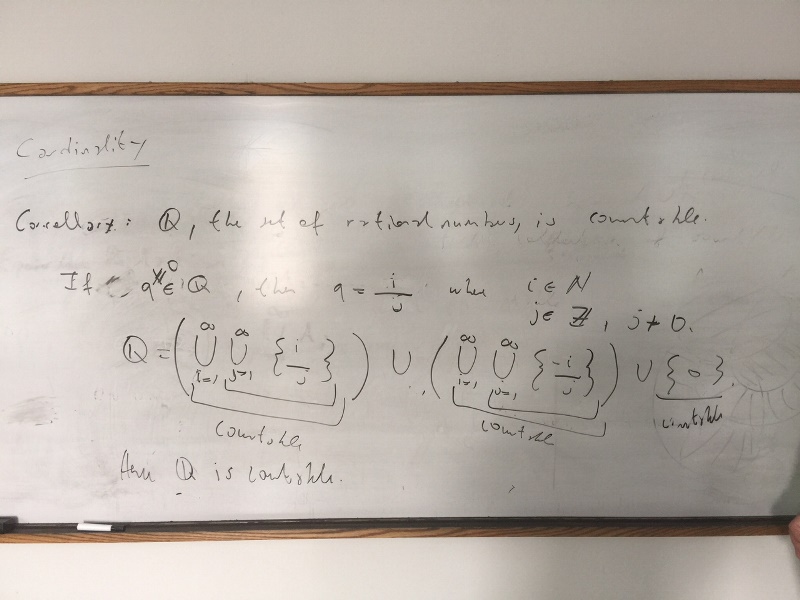 Cardinality
Corrollary: ℚ, the set of rational numbers, is countable.
If 0 ≠ q ∈ ℚ, then q = i/j where i ∈ ℕ
j ∈ ℤ, j ≠ 0.
ℚ = (⋃_{i=1}^∞ ⋃_{j=1}^∞ {i/j}) ∪ (⋃_{i=1}^∞ ⋃_{j=1}^∞ {-i/j}) ∪ {0}.
countable countable countable
Hence ℚ is countable.